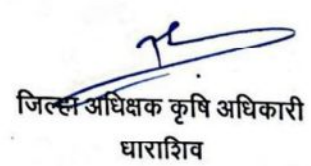 जिल्हा अधिक्षक कृषि अधिकारी
धाराशिव